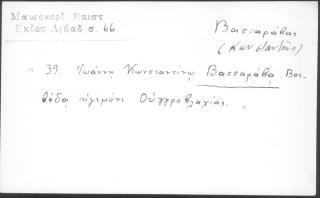 Μαυροκορδ Επιστ
Εκδοσ Λιβαδ σ. 66
Βασσαράβας
(Κωνσταντῖνος)
" 39. Ἰωάννῃ Κωνσταντίνῳ Βασσαράβᾳ Βοε-
βόδᾳ ἡγεμόνι Οὐγγροβλαχίας. "